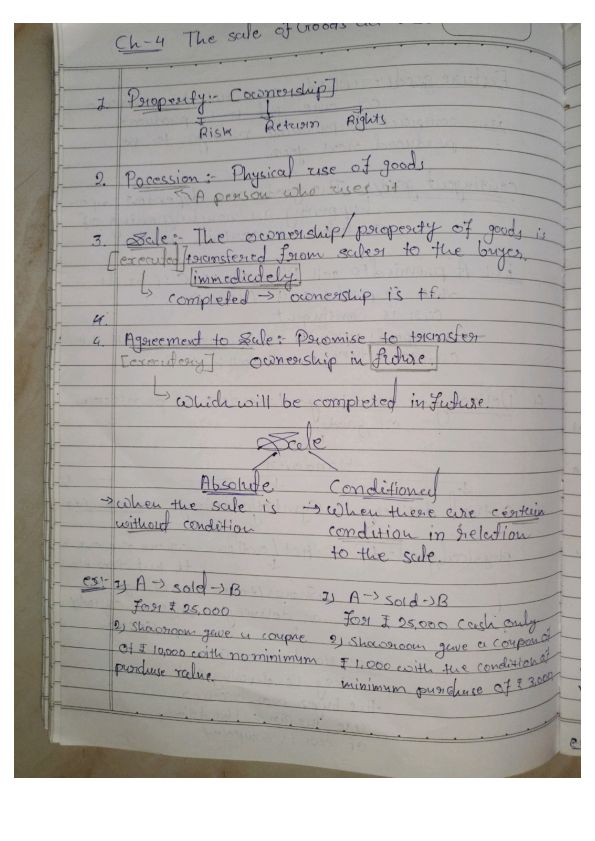 Ch-4 The sale of Goods
1. Property:- [ownership]
Risk Return Rights
2. Pocession:- Physical use of goods
A person who uses it
3. Sale:- The ownership/property of goods is
[executed] transferred from saler to the buyer.
immedictely
completed → ownership is tf.
4.
4. Agreement to Sale:- Promise to transfer
[executory] ownership in future.
which will be completed in future.
Sale
Absolute Conditioned
→ when the sale is → when there are certain
without condition condition in relation
to the sale.
ex:- 1) A → sold → B 1) A → sold → B
For ₹ 25,000 For ₹ 25,000 cash only
2) Showroom gave a coupne 2) Showroom gave a coupon of
of ₹ 10,000 with no minimum ₹ 1,000 with the condition of
purchase value. minimum purchase of ₹ 3,000